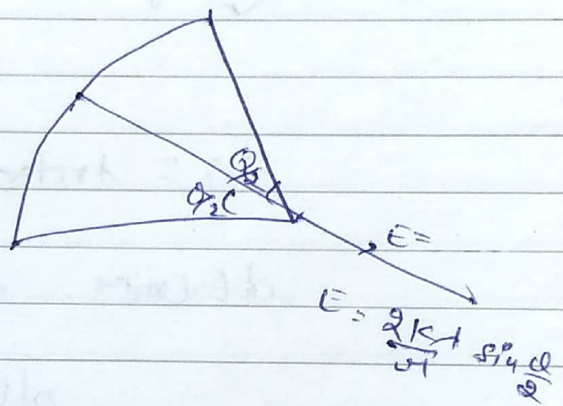 θ/2
θ/2
E =
E = 2kλ/r sin θ/2